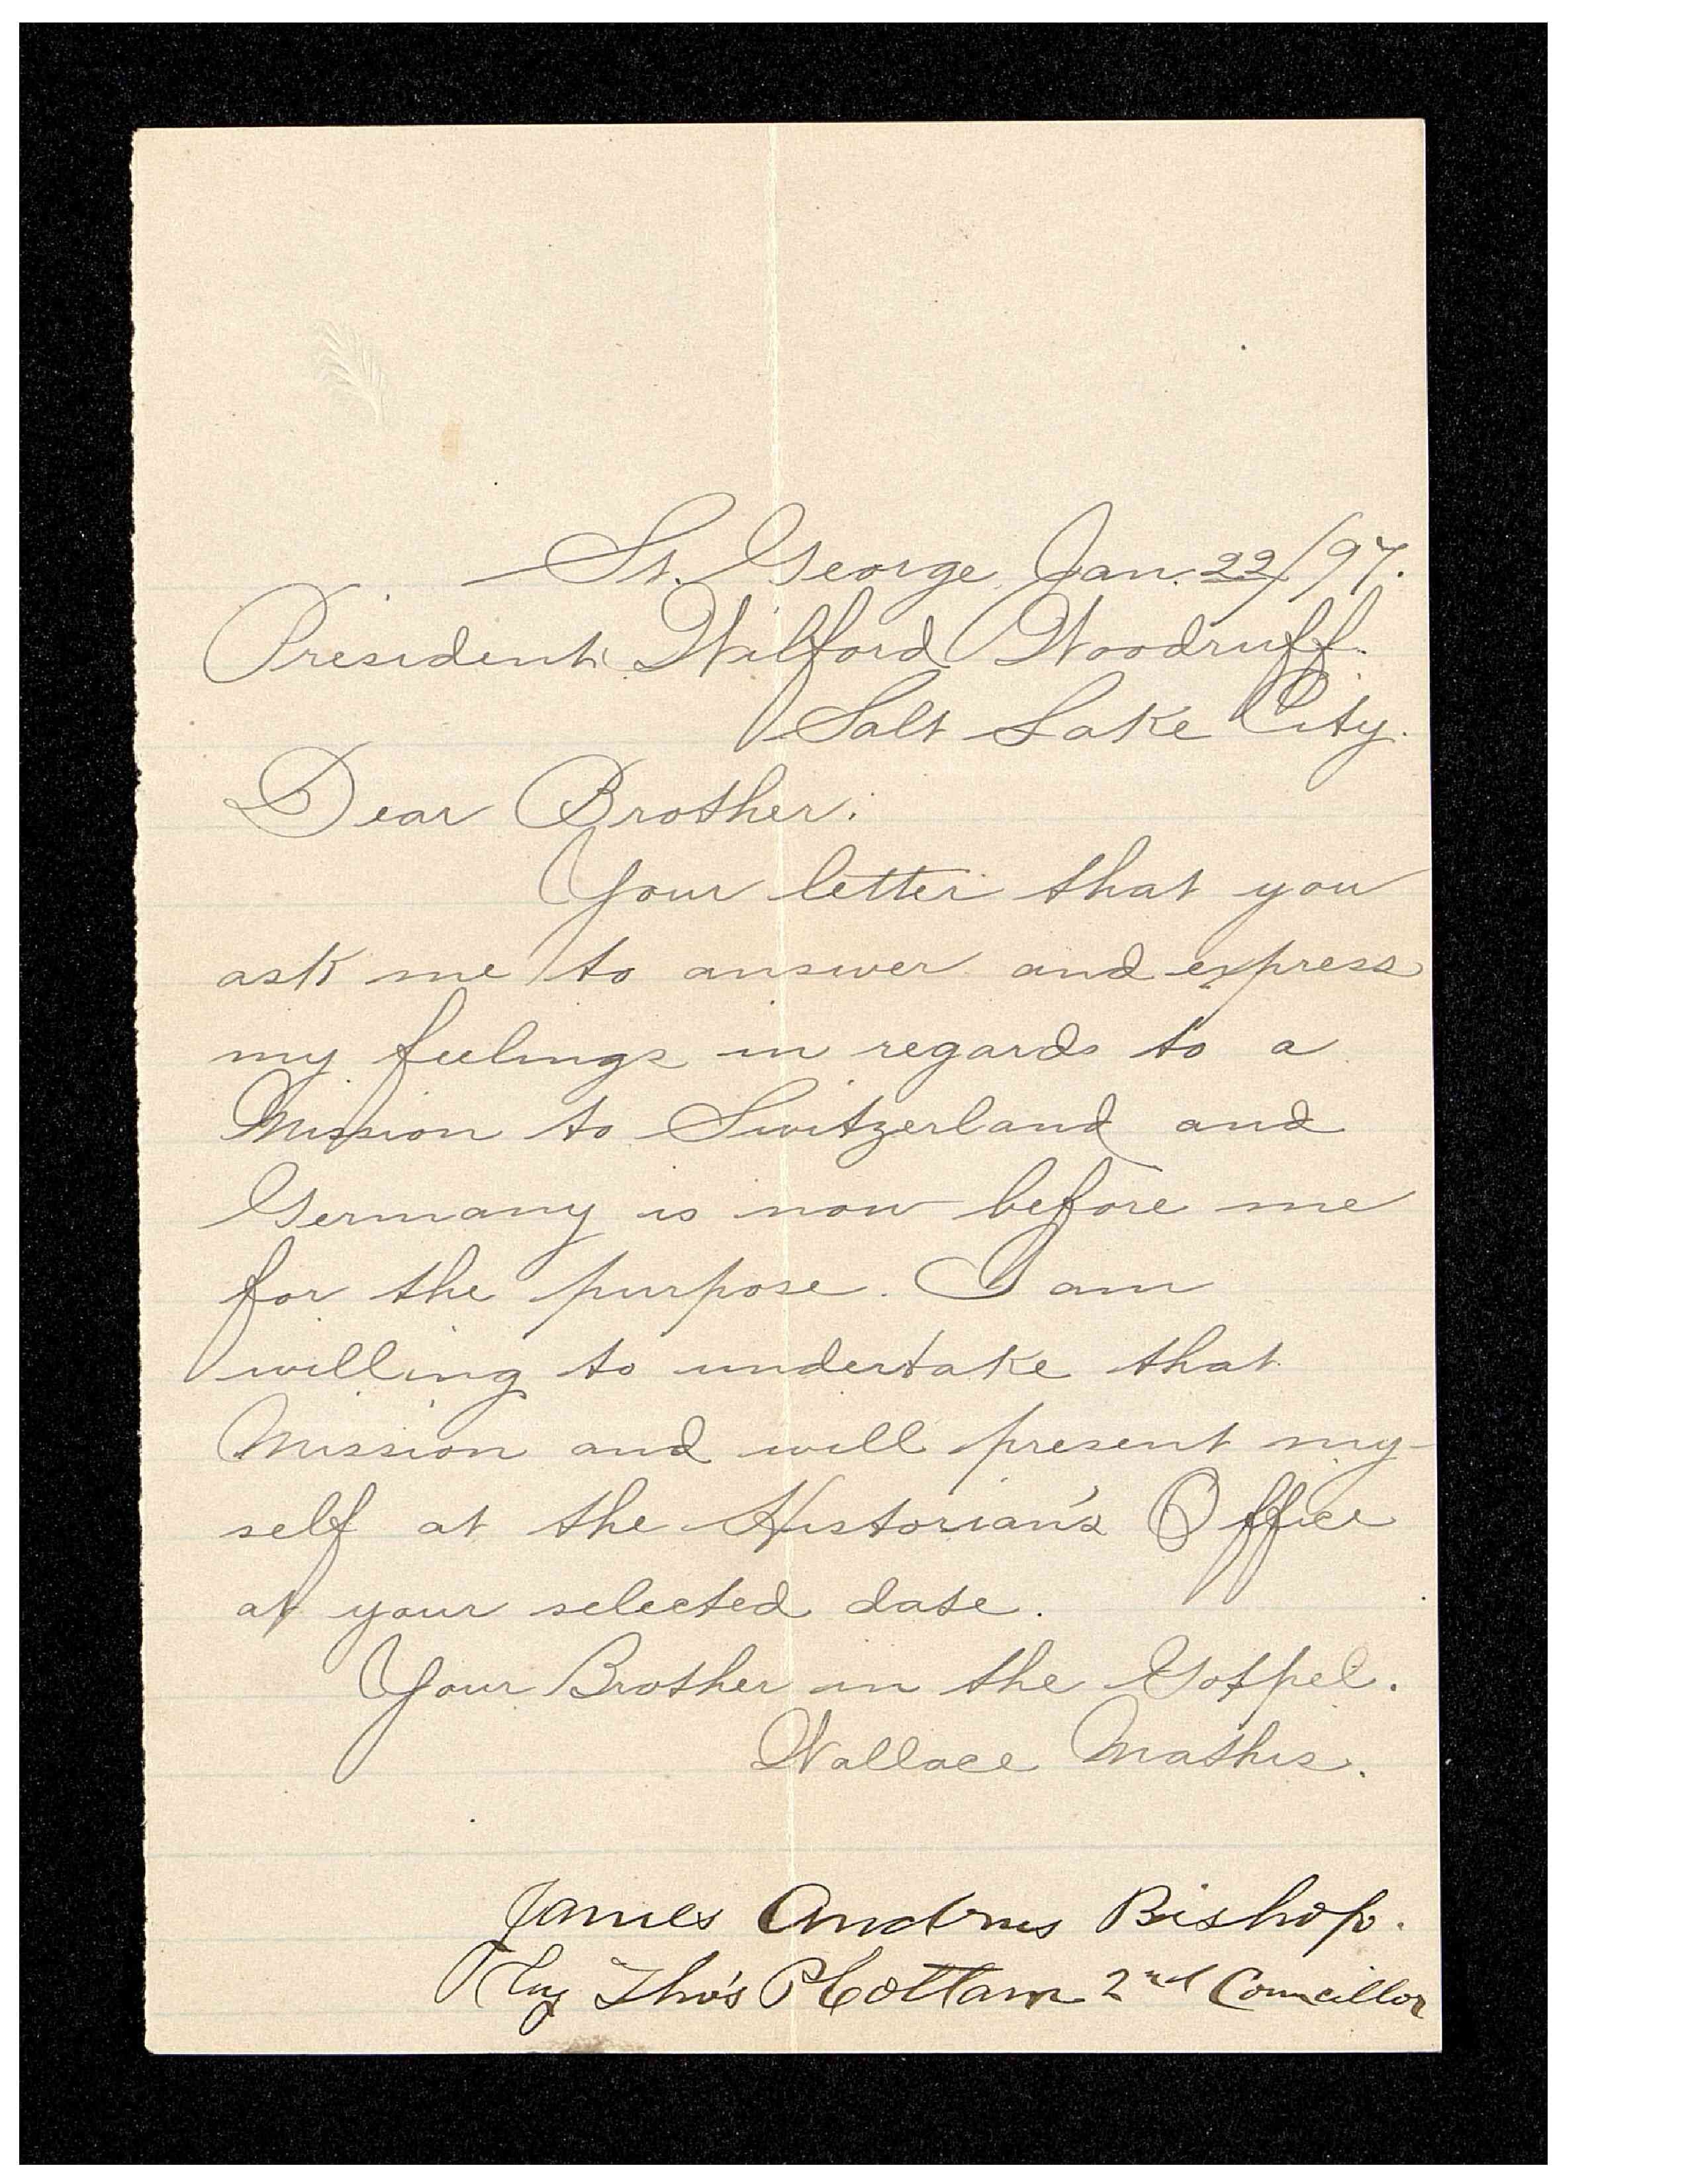 St. George Jan. 22/97.
President Wilford Woodruff.
Salt Lake City.
Dear Brother:
Your letter that you
ask me to answer and express
my feelings in regards to a
Mission to Switzerland and
Germany is now before me
for the purpose. I am
willing to undertake that
Mission and will present my-
self at the Historian's Office
at your selected date.
Your Brother in the Gospel.
Wallace Mathis.
James Andrus Bishop.
By Tho's P Cottam 2nd Councillor